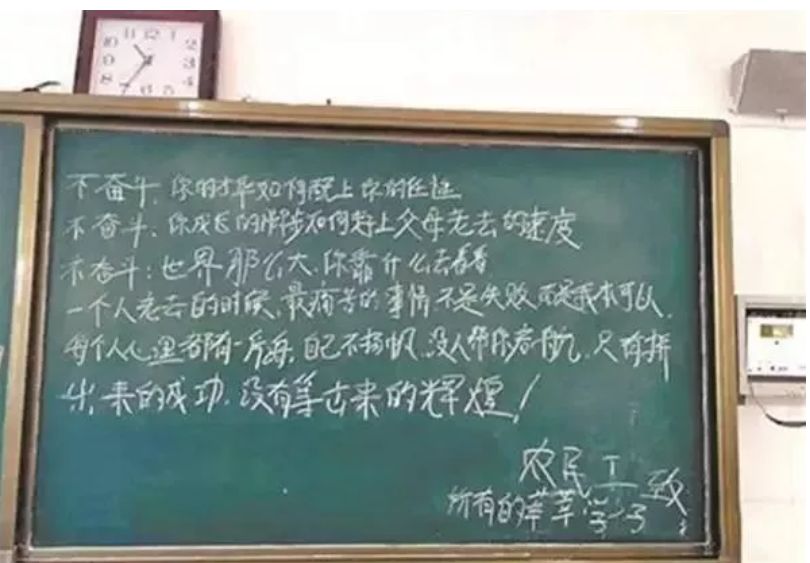 11 12 1
10 2
9 3
8 4
7 6 5
不奋斗,你的才华如何配上你的任性
不奋斗,你成长的脚步如何赶上父母老去的速度
不奋斗:世界那么大,你靠什么去看看
一个人老去的时候,最痛苦的事情,不是失败,而是我本可以,
每个人心里都有一片海,自己不扬帆,没人帮你启航,只有拼
出来的成功,没有等出来的辉煌!
农民工致
所有的莘莘学子